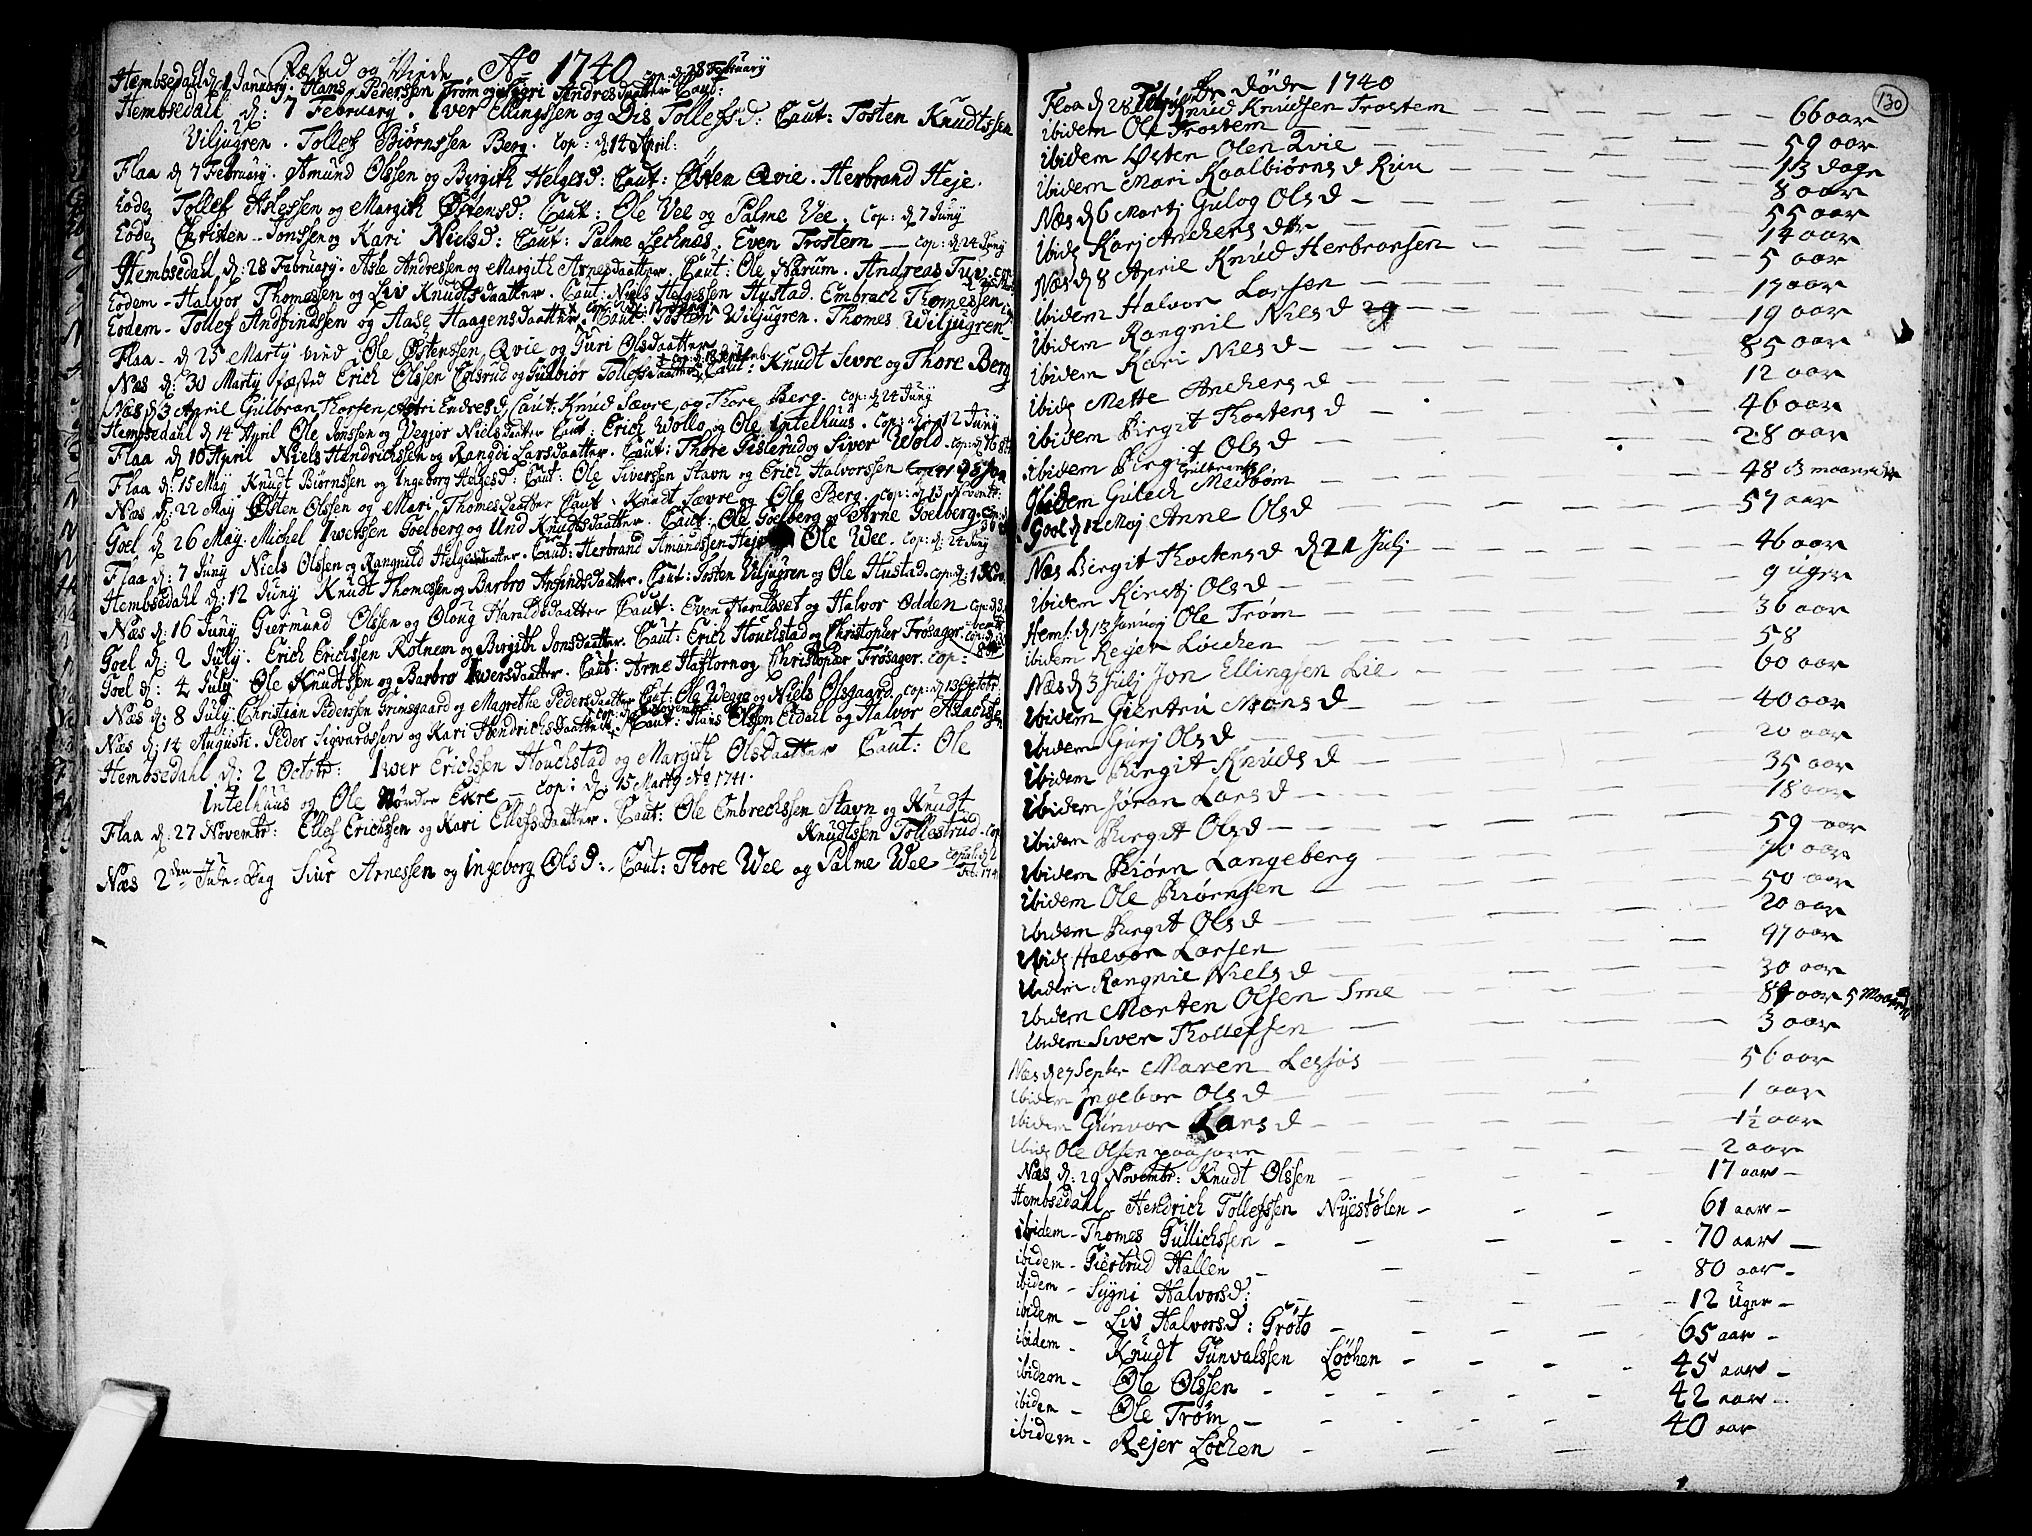 Fæsted og Viede Ao 1740
Hembsedahl d: 1 January: Hans Pedersen Trøm og Sigri Andresdaatter Caut: cop: d: 28 February
Hembsedahl d: 7 February. Iver Ellingssen og Dis Tollefsd: Caut: Tosten Knudtssen
Viljugren. Tollef Biørnssen Berg. Cop: d: 14 April:
Flaa d 7 February. Amund Olssen og Bergith Helgesd: Caut: Østen Qvie. Herbrand Heje.
Eodem Tollef Aslessen og Margith Østensd: Caut: Ole Vee og Palme Vee. Cop: d 7 Juny
Eodem Christen Jonssen og Kari Nielsd: Caut: Palme Lecknæs. Even Trostem — Cop: d 24 Juny
Hembsedahl d: 28 February. Asle Andressen og Margith Arnesdaatter. Caut: Ole Narum. Andreas Tuv. cop:
Eodem - Halvor Thomessen og Liv Knudtsdaatter. Caut: Niels Helgessen Hustad. Embrach Thomessen
Eodem - Tollef Andfindssen og Aase Haagensdaatter. Caut: Tosten Wiljugren. Thomes Wiljugren
Flaa - d 25 Marty vied Ole Østenssen Qvie og Guri Olsdaatter
Næs d: 30 Marty fæsted Erich Olssen Colsrud og Gulbiør Tollefsdaatter Caut: Knudt Sevre og Thore Berg
Næs d 3 April Gulbran Thorsen Astri Endresd Caut: Knud Sævre og Thore Berg. Cop: d 24 Juny
Hembsedahl d 14 April Ole Jonssen og Vegjør Nielsdaatter Caut: Erich Wollo og Ole Intelhuus. Cop: d: 12 Juny
Flaa d 10 April Niels Hendrichssen og Rangdi Larsdaatter. Caut: Thore Gislerud og Siver Wold. Cop: d 16 8br
Flaa d: 15 May Knudt Biørnssen og Ingeborg Helgesd: Caut: Ole Siverssen Stavn og Erich Halvorssen
Næs d: 22 May Østen Olssen og Mari Thomesdaatter Caut: Knudt Sævre og Ole Berg. Cop: d: 13 Novembr:
Goel d 26 May: Michel Iwerssen Goelberg og Und Knudtsdaatter. Caut: Ole Goelberg og Arne Goelberg. Cop: d
Flaa d: 7 Juny Niels Olssen og Rangnild Helgesdaatter. Caut: Herbrand Amundssen Heje Ole Wee. Cop: d: 24 Juny
Hembsedahl d: 12 Juny Knudt Thomessen og Barbro Anfindsdaatter. Caut: Tosten Viljugren og Ole Hustad. cop: d: 1
Næs d: 16 Juny Giermund Olssen og Oloug Haraldsdaatter Caut: Even Haraldset og Halvor Odden cop: d 3
Goel d: 2 July. Erich Erichssen Rotnem og Birgith Jonsdaatter. Caut: Erich Houchstad og Christopher Frøsager. cop: d:
Goel d: 4 July Ole Knudtssen og Barbro Iwersdaatter. Caut: Arne Haftorn og Christopher Frøsager. cop:
Næs d: 8 July: Christian Pederssen Grimsgaard og Magrethe Pedersdaatter Caut: Ole Wegge og Niels Olsgaard. cop: d 13 Octobr:
Næs d: 14 Augusti. Peder Sigvardssen og Kari Hendrichsdaatter Caut: Hans Olsson Eidahl og Halvor Aslachssen
Hembsedahl d: 2 Octobr: Iwer Erichssen Houchstad og Margith Olsdaatter Caut: Ole
Intelhuus og Ole Nønder Ekre - Cop: d: 15 Marty Ao 1741.
Flaa d: 27 Novembr: Ellef Erichssen og Kari Ellefsdaatter. Caut: Ole Embrechssen Stavn og Knudt
Knudtssen Tollefsrud. cop
Næs 2den Jule-Dag Siur Arnessen og Ingeborg Olsd: Caut: Thore Wee og Palme Wee copul: d 2 Feb: 174
130
døde 1740
Floa d 28 Knud Knudsen Trostem — 66 aar
ibidem Ole Trostem — 59 aar
ibidem Østen Olsen Qvie — 13 dage
ibidem Mari Kaalbiørns d Rue — 8 aar
Næs d 6 Martj Gulog Ols d — 55 aar
ibid Karj Anchers dtr — 14 aar
Næs d 8 April Knud Herbransen — 5 aar
ibidem Halvor Larsen — 17 aar
ibidem Rangnil Niels d 29 — 19 aar
ibidem Kari Niels d — 85 aar
ibid Mette Anchers d — 12 aar
ibidem Birgit Thostens d — 46 aar
ibidem Birgit Ols d — 28 aar
ibidem Gulech Gulbrans Medbøm — 48 d maaneder
Gool d 12 Maj Anne Ols d — 57 aar
Næs Birgit Thostens d d 21 Julj — 46 aar
ibidem Kirstj Ols d — 9 uger
Hems: d 13 Januarj Ole Trøm — 36 aar
ibidem Rejer Løichen — 58
Næs d 3 Julj Jon Ellingsen Lie — 60 aar
ibidem Giertru Mons d — 40 aar
ibidem Gurj Ols d — 20 aar
ibidem Birgit Knuds d — 35 aar
ibidem Jøran Lars d — 18 aar
ibidem Birgit Ols d — 59 aar
ibidem Biørn Langeberg — 70 aar
ibidem Ole Biørnsen — 50 aar
ibidem Birgit Ols d — 20 aar
ibid Halvor Larsen — 97 aar
ibidem Rangnil Niels d — 30 aar
ibidem Morten Olsen Sme — 84 aar 5 Maaneder
ibidem Siver Thollefsen — 3 aar
Næs d 27 Septbr Maren Lessjøs — 56 aar
ibidem Ingebor Ols d — 1 aar
ibidem Gunvor Lars d — 1½ aar
ibid Ole Olsen paa Jorn — 2 aar
Næs d: 29 Novembr: Knudt Olssen — 17 aar —
Hembsedahl - Hendrich Tollefssen Nyestølen - 61 aar -
ibidem - Thomes Gullichssen - 70 aar —
ibidem - Giertrud Hallen - 80 aar -
ibidem - Sygni Halvorsd: - 12 uger -
ibidem - Liv Halvorsd: Grøto - 65 aar -
ibidem - Knudt Gunvalssen Løchen - 45 aar -
ibidem - Ole Olssen - 42 aar -
ibidem - Ole Trøm - 40 aar
ibidem - Rejer Løchen -